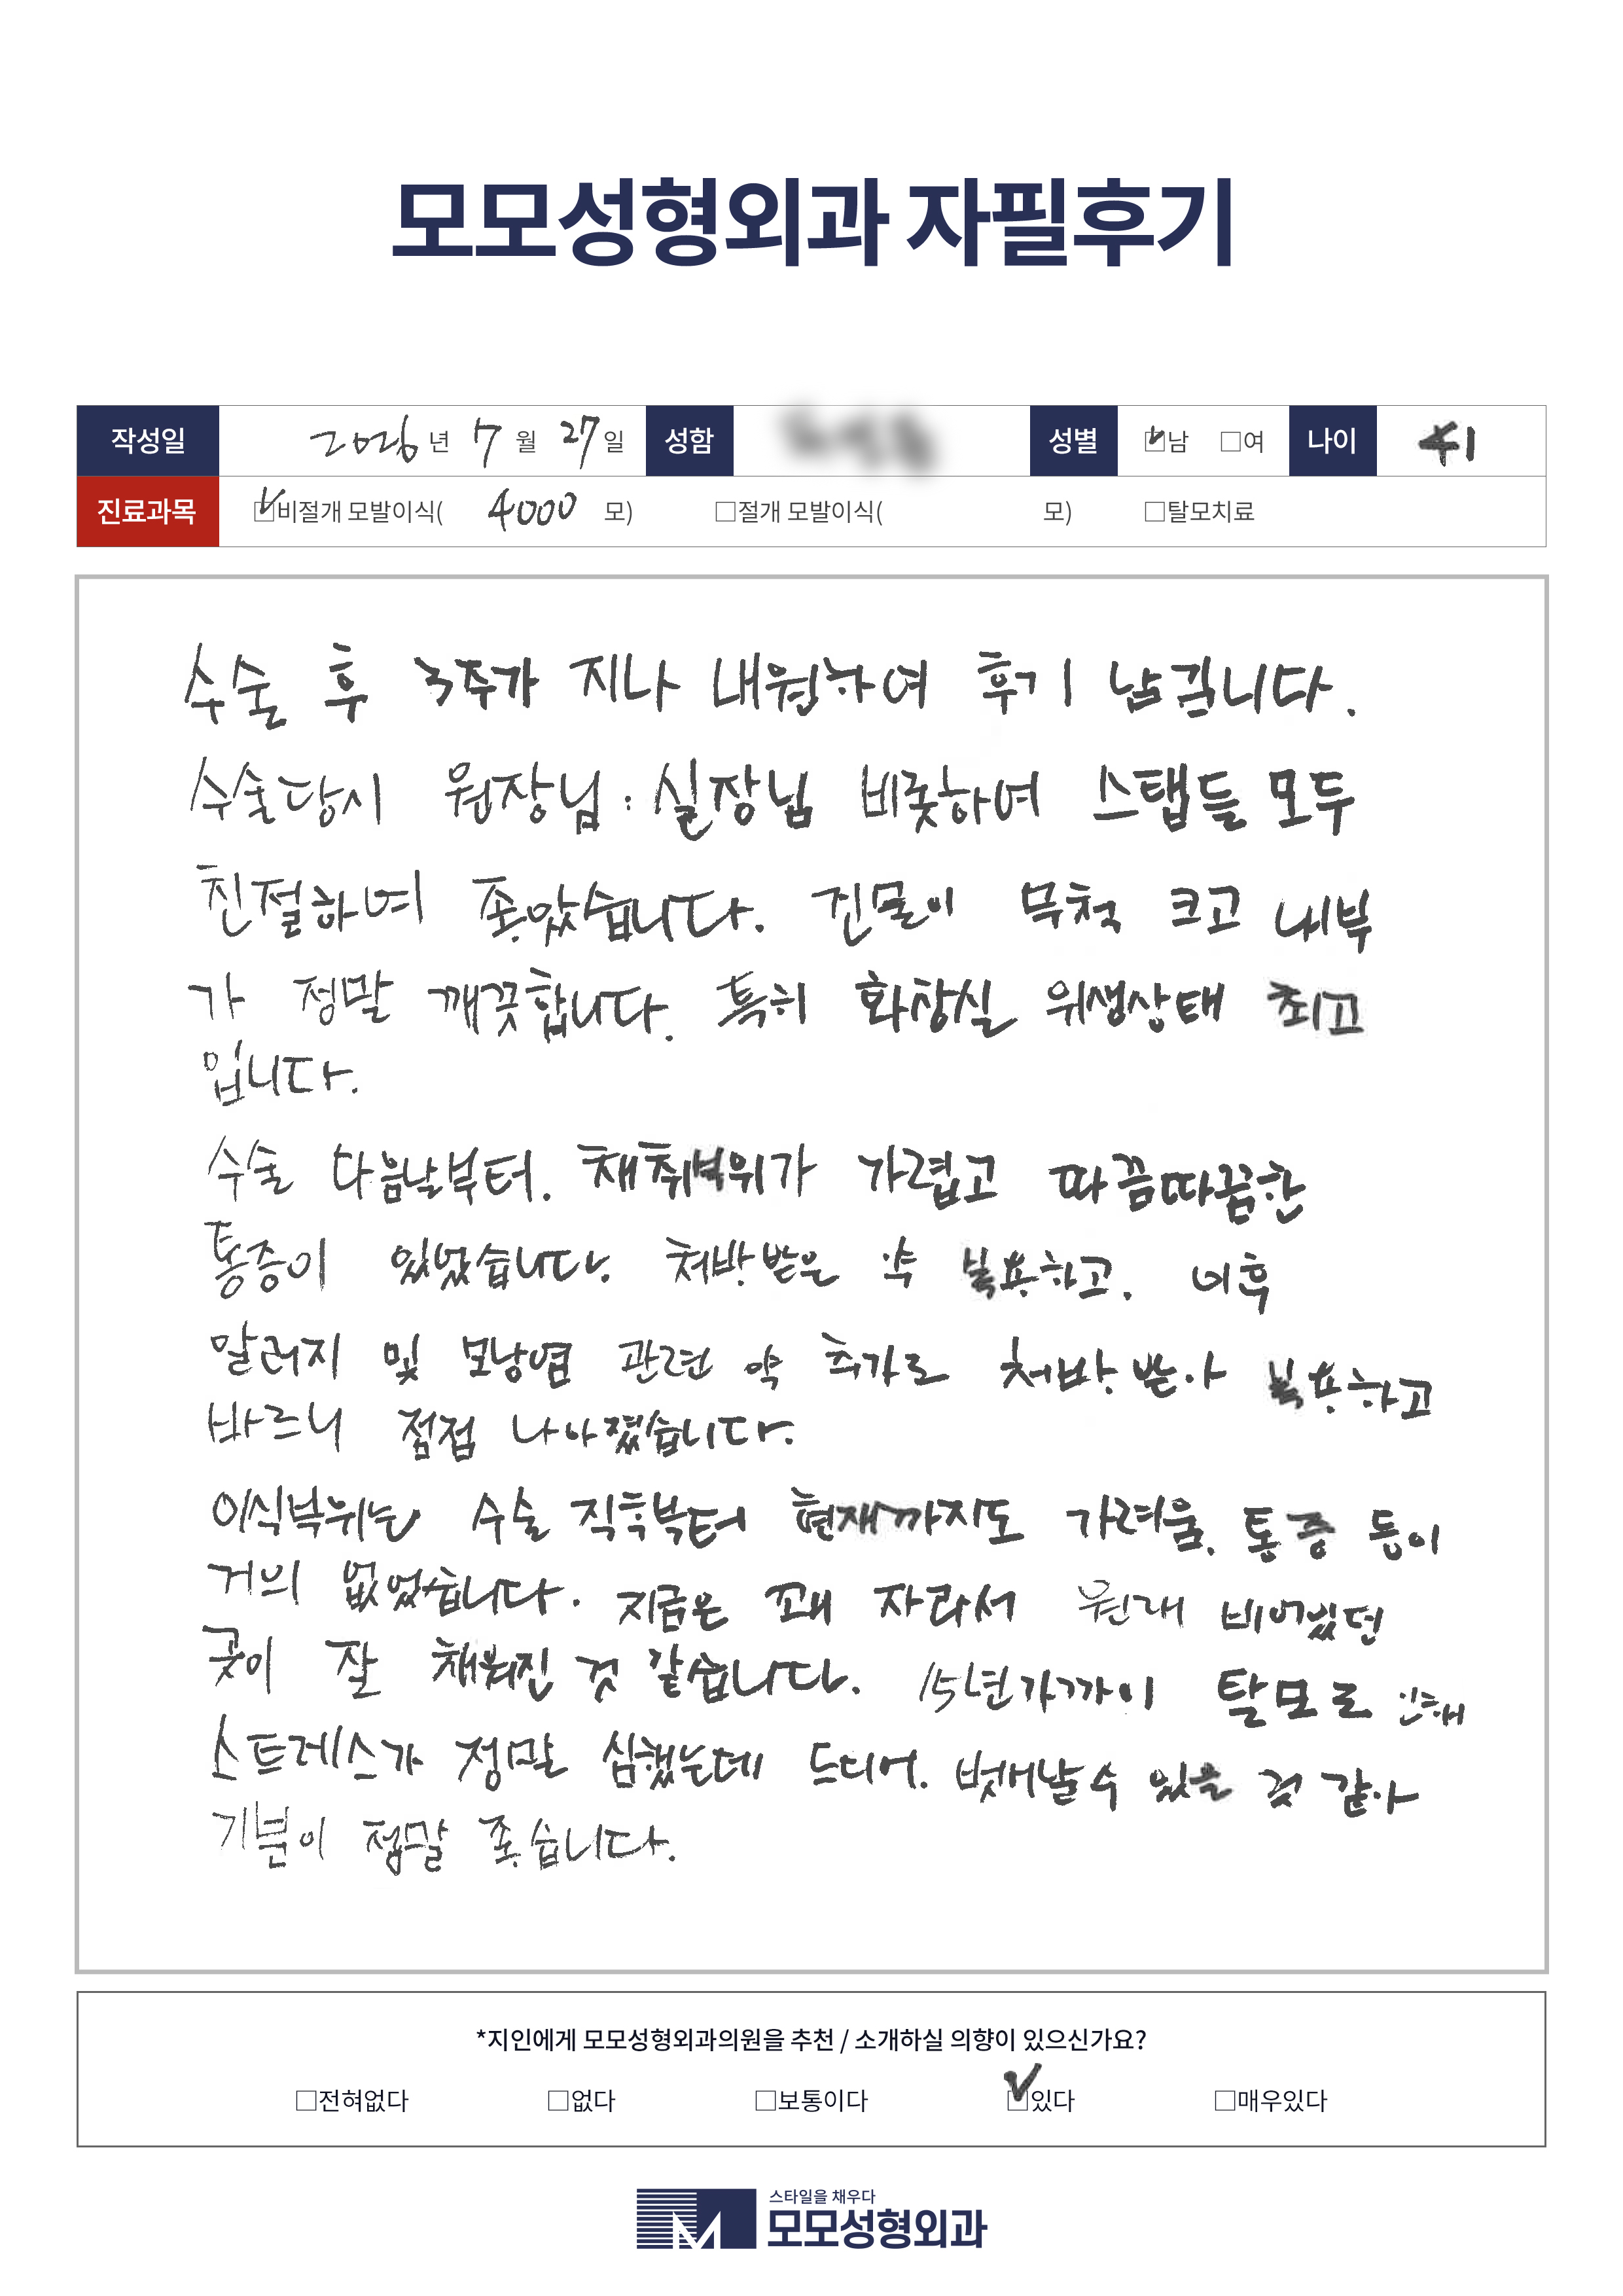 모모성형외과 자필후기
작성일 2026년 7월 27일 성함 성별 ☑남 □여 나이 41
진료과목 ☑비절개 모발이식( 4000 모) □절개 모발이식( 모) □탈모치료
수술 후 3주가 지나 내원하여 후기 남깁니다.
수술당시 원장님·실장님 비롯하여 스탭들 모두
친절하여 좋았습니다. 건물이 무척 크고 내부
가 정말 깨끗합니다. 특히 화장실 위생상태 최고
입니다.
수술 다음날부터. 채취부위가 가렵고 따끔따끔한
통증이 있었습니다. 처방받은 약 복용하고, 이후
알러지 및 모낭염 관련 약 추가로 처방 받아 복용하고
바르니 점점 나아졌습니다.
이식부위는 수술 직후부터 현재까지도 가려움, 통증 등이
거의 없었습니다. 지금은 꽤 자라서 원래 비어있던
곳이 잘 채워진 것 같습니다. 15년 가까이 탈모로 인해
스트레스가 정말 심했는데 드디어. 벗어날 수 있을 것 같아
기분이 정말 좋습니다.
*지인에게 모모성형외과의원을 추천 / 소개하실 의향이 있으신가요?
□전혀없다 □없다 □보통이다 ☑있다 □매우있다
스타일을 채우다
모모성형외과